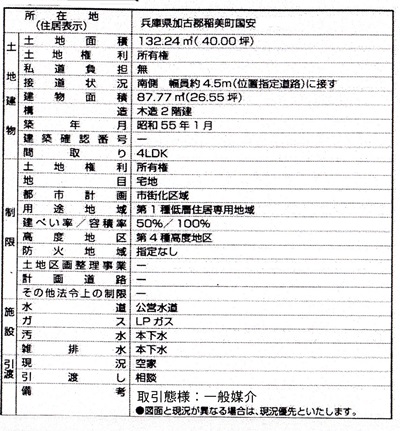 所在地(住居表示) 兵庫県加古郡稲美町国安
土地建物
土地面積 132.24㎡(40.00坪)
土地権利 所有権
私道負担 無
接道状況 南側 幅員約4.5m(位置指定道路)に接す
建物面積 87.77㎡(26.55坪)
構造 木造2階建
築年月 昭和55年1月
建築確認番号 ―
間取り 4LDK
制限
土地権利 所有権
地目 宅地
都市計画 市街化区域
用途地域 第1種低層住居専用地域
建ぺい率/容積率 50%/100%
高度地区 第4種高度地区
防火地域 指定なし
土地区画整理事業 ―
計画道路 ―
その他法令上の制限 ―
施設
水道 公営水道
ガス LPガス
汚水 本下水
雑排水 本下水
引渡
現況 空家
引渡し 相談
備考 取引態様:一般媒介
●図面と現況が異なる場合は、現況優先といたします。